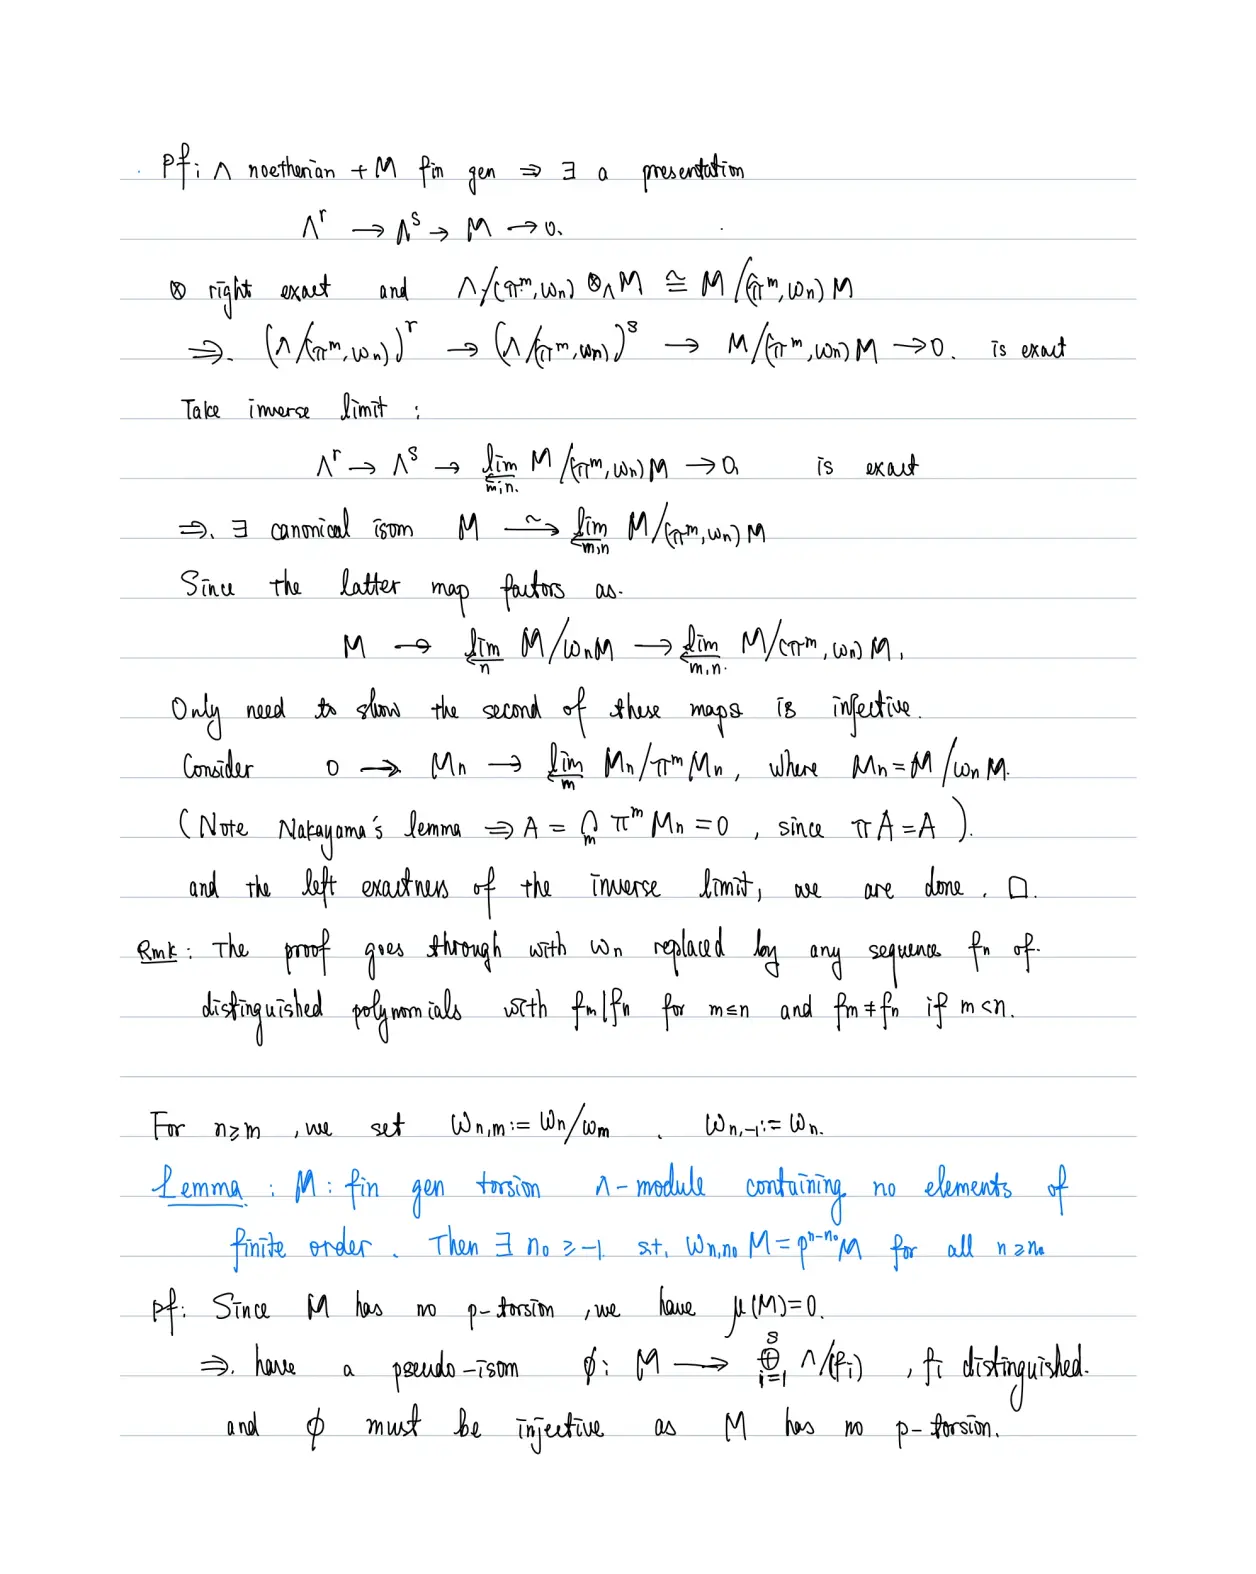 Pf: Λ noetherian + M fin gen ⇒ ∃ a presentation
Λ^r → Λ^s → M → 0.
⊗ right exact and Λ/(π^m, ω_n) ⊗_Λ M ≅ M/(π^m, ω_n) M
⇒. (Λ/(π^m, ω_n))^r → (Λ/(π^m, ω_n))^s → M/(π^m, ω_n) M → 0. is exact
Take inverse limit :
Λ^r → Λ^s → lim_{←m,n.} M/(π^m, ω_n) M → 0, is exact
⇒. ∃ canonical isom M ⥲ lim_{←m,n} M/(π^m, ω_n) M
Since the latter map factors as.
M → lim_{←n} M/ω_n M → lim_{←m,n.} M/(π^m, ω_n) M,
Only need to show the second of these maps is injective.
Consider 0 → M_n → lim_{←m} M_n/π^m M_n, where M_n = M/ω_n M.
(Note Nakayama's lemma ⇒ A = ∩_m π^m M_n = 0, since πA = A).
and the left exactness of the inverse limit, we are done. □.
Rmk: The proof goes through with ω_n replaced by any sequence f_n of.
distinguished polynomials with f_m | f_n for m≤n and f_m ≠ f_n if m<n.
For n≥m, we set ω_{n,m} := ω_n/ω_m. ω_{n,-1} := ω_n.
Lemma : M : fin gen torsion Λ-module containing no elements of
finite order. Then ∃ n_0 ≥ -1 s.t. ω_{n,n_0} M = p^{n-n_0} M for all n≥n_0
pf: Since M has no p-torsion, we have μ(M)=0.
⇒. have a pseudo-isom ϕ: M → ⊕_{i=1}^s Λ/(f_i), f_i distinguished.
and ϕ must be injective as M has no p-torsion.